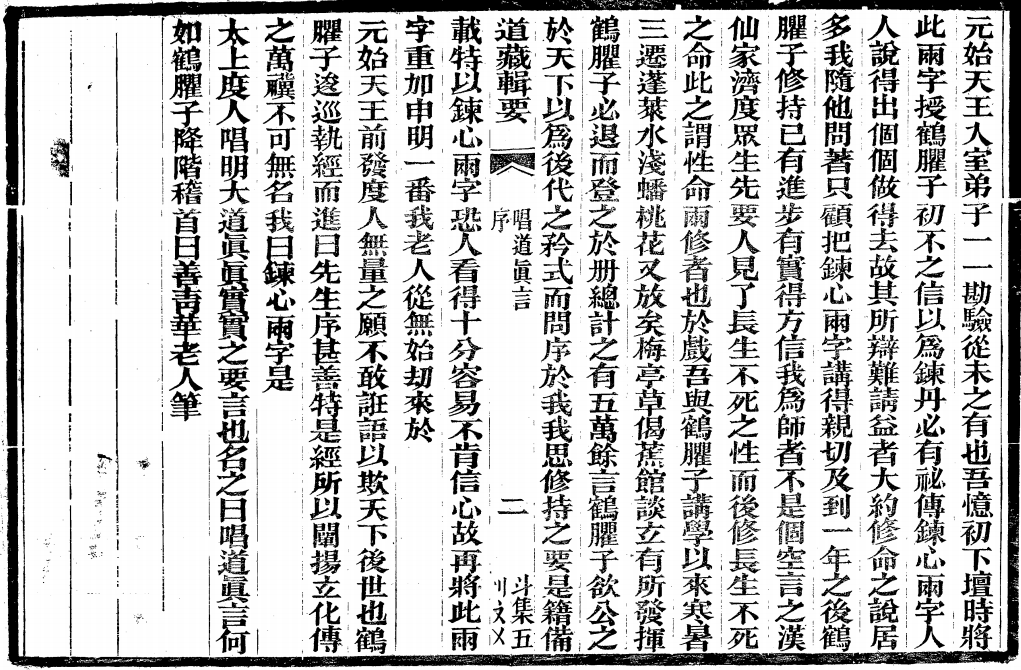 元始天王入室弟子一一勘驗從未之有也吾憶初下壇時將
此兩字授鶴臞子初不之信以爲鍊丹必有祕傳鍊心兩字人
人說得出個個做得去故其所辯難請益者大約修命之說居
多我隨他問著只顧把鍊心兩字講得親切及到一年之後鶴
臞子修持已有進步有實得方信我爲師者不是個空言之漢
仙家濟度眾生先要人見了長生不死之性而後修長生不死
之命此之謂性命兩修者也於戲吾與鶴臞子講學以來寒暑
三遷蓬萊水淺蟠桃花又放矣梅亭草偈蕉館談立有所發揮
鶴臞子必退而登之於册總計之有五萬餘言鶴臞子欲公之
於天下以爲後代之矜式而問序於我我思修持之要是籍備
道藏輯要
唱道眞言
序
二
斗集五
載特以鍊心兩字恐人看得十分容易不肯信心故再將此兩
字重加申明一番我老人從無始刧來於
元始天王前發度人無量之願不敢誑語以欺天下後世也鶴
臞子逡巡執經而進曰先生序甚善特是經所以闡揚立化傳
之萬禩不可無名我曰鍊心兩字是
太上度人唱明大道眞眞實實之要言也名之曰唱道眞言何
如鶴臞子降階稽首曰善靑華老人筆